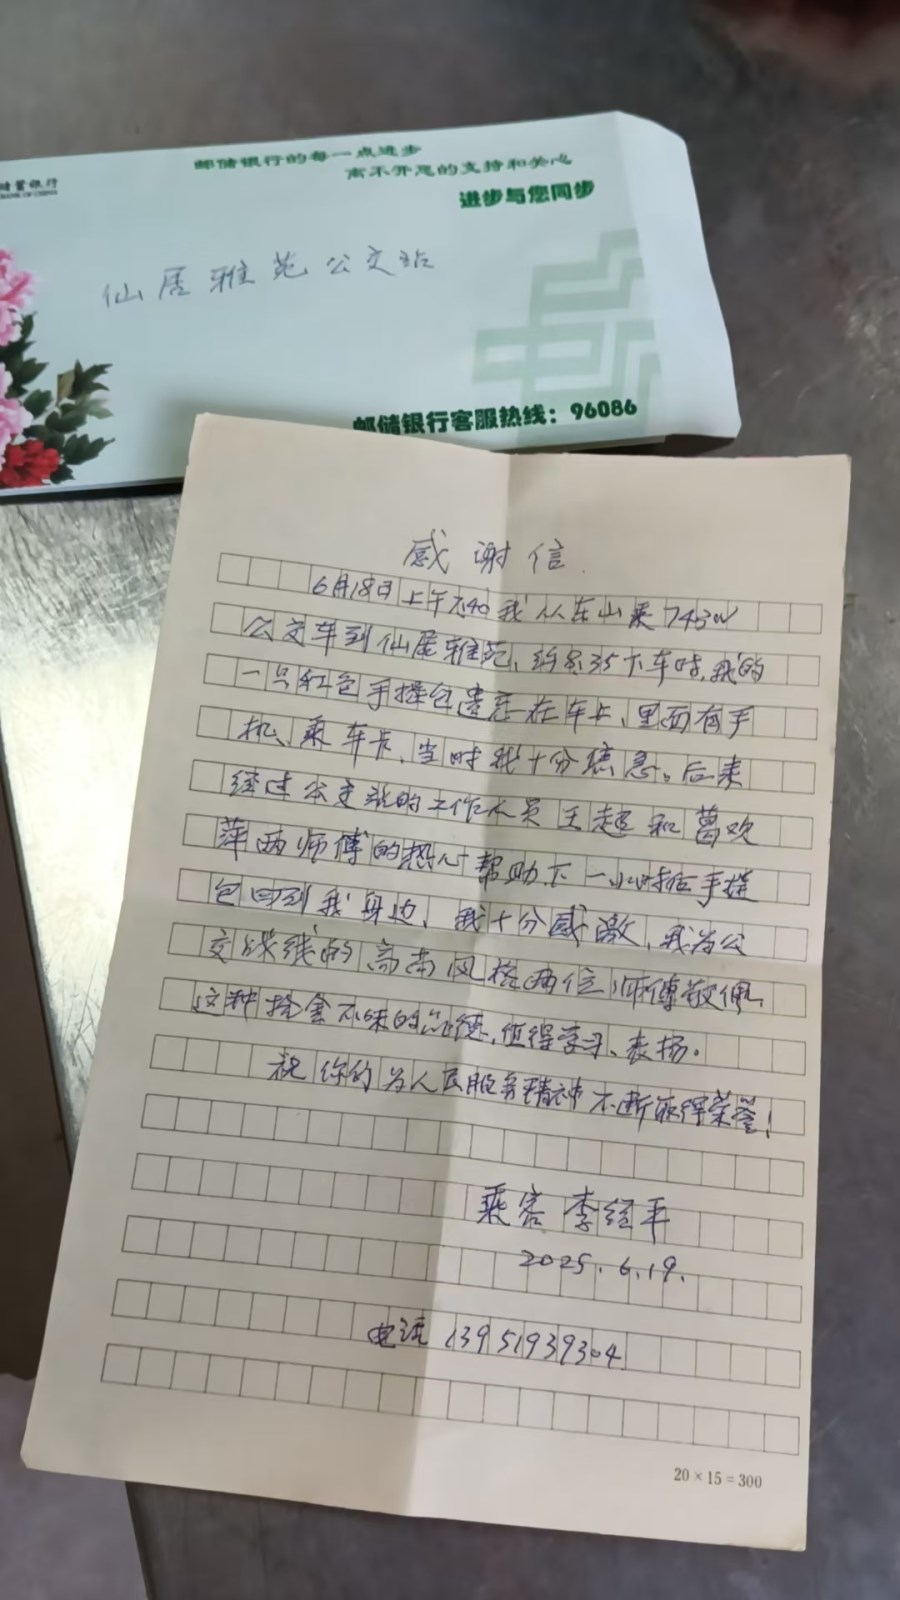 储蓄银行
BANK OF CHINA
邮储银行的每一点进步
离不开您的支持和关心
进步与您同步
仙居雅苑公交站
邮储银行客服热线：96086
感谢信
6月18日上午7.40我从东山乘743
公交车到仙居雅苑、约8.35下车时,我的
一只红色手提包遗忘在车上、里面有手
机、乘车卡、当时我十分焦急。后来
经过公交站的工作人员王超和葛欢
萍两师傅的热心帮助下一小时后手提
包回到我身边、我十分感激,我为公
交战线的高尚风格两位师傅敬佩,
这种拾金不昧的品德,值得学习、表扬。
祝你们为人民服务精神不断取得荣誉!
乘客 李经平
2025.6.19.
电话 13951939304
20×15=300